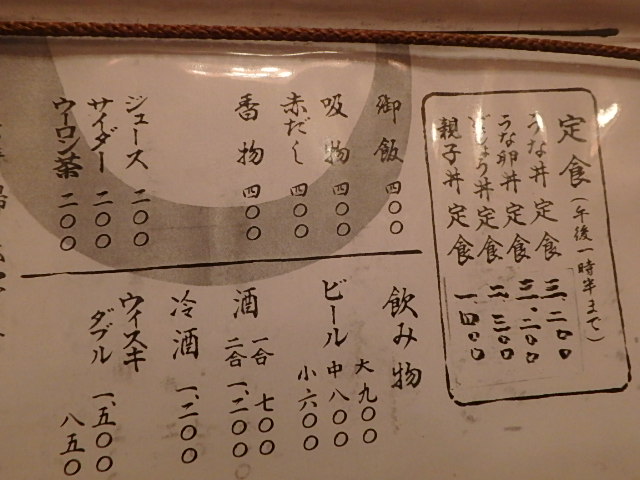 定食(午後一時半まで)
うな丼定食 三、二〇〇
うな卵丼定食 三、二〇〇
どじょう丼定食 二、三〇〇
親子丼定食 一、四〇〇
御飯 四〇〇
吸物 四〇〇
赤だし 四〇〇
香物 四〇〇
ジュース 二〇〇
サイダー 二〇〇
ウーロン茶 二〇〇
飲み物
ビール 大 九〇〇
中 八〇〇
小 六〇〇
酒 一合 七〇〇
二合 一、二〇〇
冷酒 一、二〇〇
ウイスキ 八五〇
ダブル 一、五〇〇